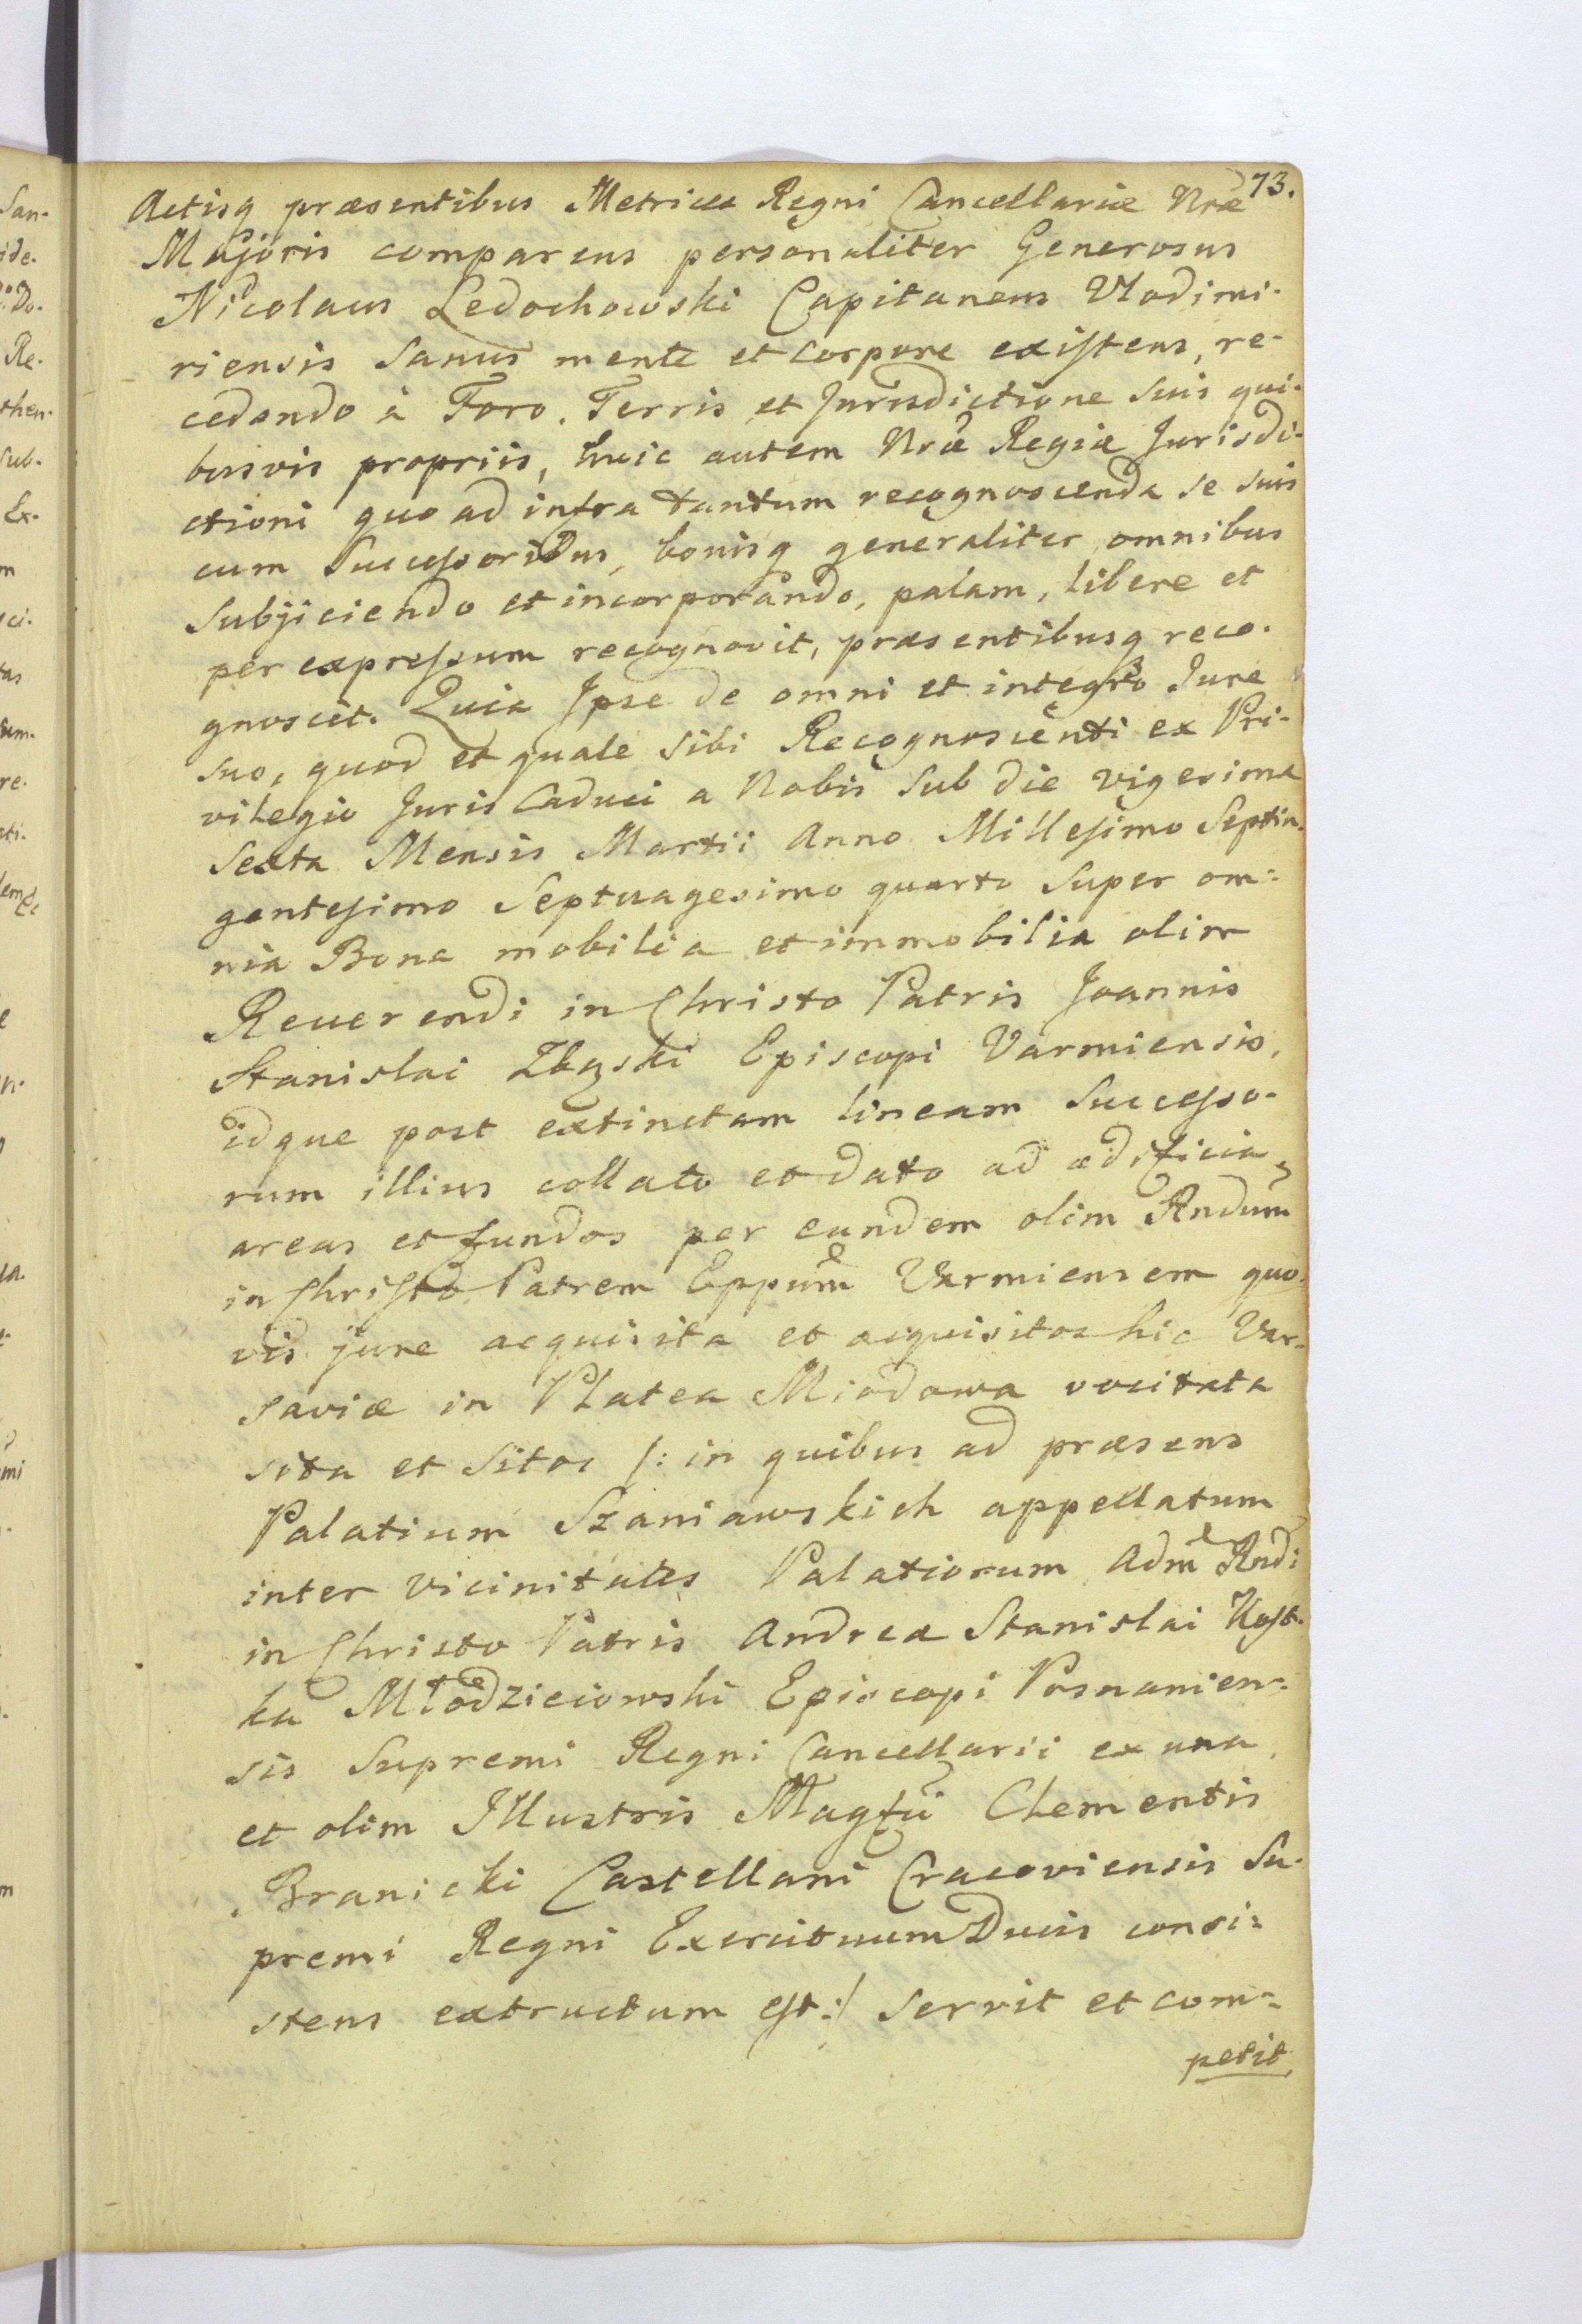 73.
Actisq præsentibus Metrices Regni Cancellariæ Nræ
Majoris comparens personaliter Generosus
Nicolaus Ledochowski Capitaneus Vlodimi-
riensis Sanus mente et corpore existens, re-
cedendo à Foro, Terris et Jurisdictione Suis qui-
busvis propriis, huic autem Nræ Regiæ Jurisdi-
ctioni quo ad infra tantum recognoscenda se suis
cum Successoribus, bonisq generaliter omnibus
Subjiciendo et incorporando, palam, libere et
per expressum recognovit, præsentibusq reco-
gnoscit. Quia Ipse de omni et integro Jure
suo, quod et quale Sibi Recognoscenti ex Pri-
vilegio Juris Caduci a Nobis Sub die vigesima
Sexta Mensis Martii Anno Millesimo Septin-
gentesimo Septuagesimo quarto Super om-
nia Bona mobilia et immobilia olim
Reuerendi in Christo Patris Joannis
Stanislai Zbąski Episcopi Varmiensis,
idque post extinctam lineam Successo-
rum illius collato et dato ad ædificia,
areas et fundos per eundem olim Rndum
in Christo Patrem Eppum Varmiensem quo-
vis jure acquisita et acquisitos hic Var-
saviæ in Platea Miodowa vocitata
sita et Sitos /: in quibus ad præsens
Palatium Szaniawskich appellatum
inter vicinitates Palatiorum Adm Rndi
in Christo Patris Andreæ Stanislai Kost-
ka Młodzieiowski Episcopi Posnanien-
sis Supremi Regni Cancellarii ex una,
et olim Illustris Magfci Clementis
Branicki Castellani Cracoviensis Su-
premi Regni Exercituum Ducis consi-
stens extructum est :/ Servit et com-
petit